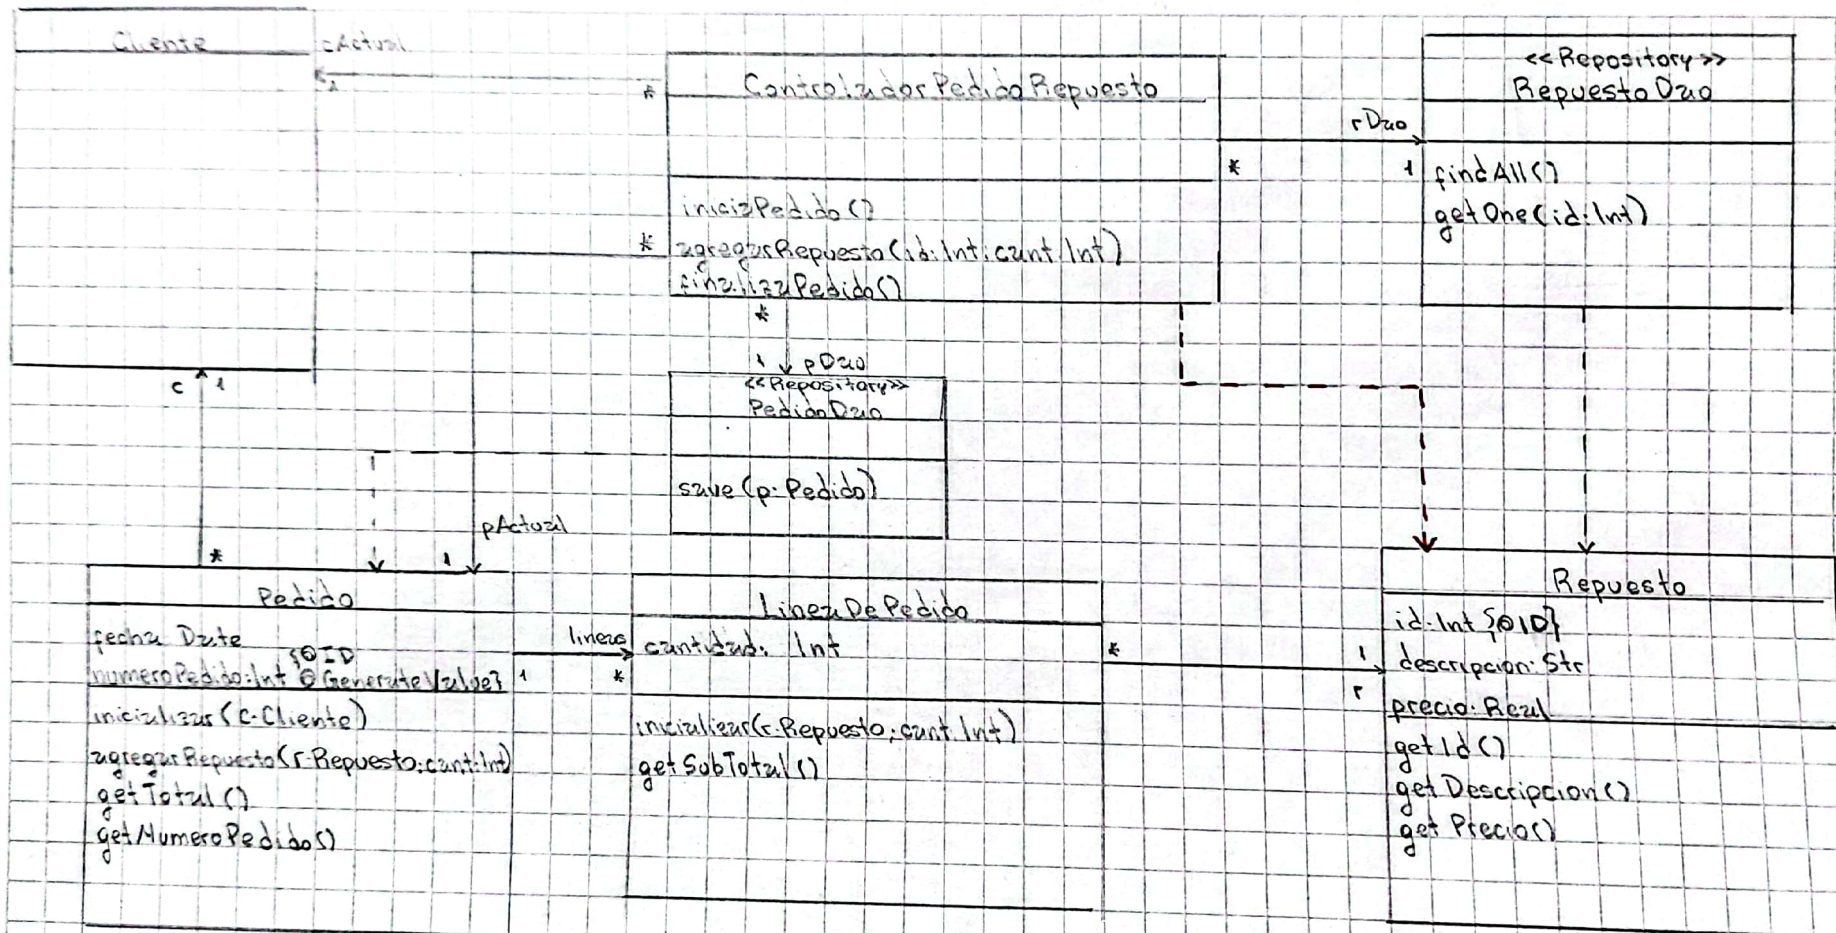 Cliente
cActual
*
ControladorPedidoRepuesto
iniciaPedido()
* agregarRepuesto(id:Int;cant:Int)
finalizaPedido()
*
rDao
*
1
<<Repository>>
RepuestoDao
findAll()
getOne(id:Int)
1 pDao
<<Repository>>
PedidoDao
save(p:Pedido)
c 1
*
pActual
1
Pedido
fecha Date
{OID
numeroPedido:Int @GenerateValue}
inicializar(c:Cliente)
agregarRepuesto(r:Repuesto;cant:Int)
getTotal()
getNumeroPedido()
lineas
1
*
LineaDePedido
cantidad: Int
inicializar(r:Repuesto;cant:Int)
getSubTotal()
*
1
r
Repuesto
id:Int {OID}
descripcion:Str
precio:Real
getId()
getDescripcion()
getPrecio()